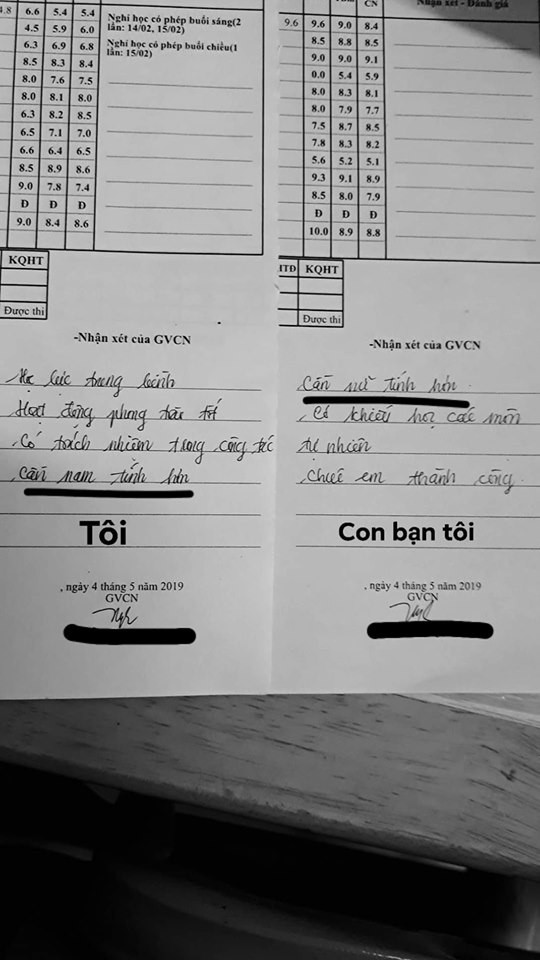 4.8 6.6 5.4 5.4 Nghỉ học có phép buổi sáng(2
4.5 5.9 6.0 lần: 14/02, 15/02)
6.3 6.9 6.8 Nghỉ học có phép buổi chiều(1
8.5 8.3 8.4 lần: 15/02)
8.0 7.6 7.5
8.0 8.1 8.0
6.3 8.2 8.5
6.5 7.1 7.0
6.6 6.4 6.5
8.5 8.9 8.6
9.0 7.8 7.4
Đ Đ Đ
9.0 8.4 8.6
KQHT
Được thi
-Nhận xét của GVCN
Học lực trung bình
Hoạt động phong trào tốt
Có trách nhiệm trong công tác
Cần nam tính hơn
Tôi
, ngày 4 tháng 5 năm 2019
GVCN
CN Nhận xét - Đánh giá
9.6 9.6 9.0 8.4
8.5 8.8 8.5
9.0 9.0 9.1
0.0 5.4 5.9
8.0 8.3 8.1
8.0 7.9 7.7
7.5 8.7 8.5
7.8 8.3 8.2
5.6 5.2 5.1
9.3 9.1 8.9
8.5 8.0 7.9
Đ Đ Đ
10.0 8.9 8.8
ITĐ KQHT
Được thi
-Nhận xét của GVCN
Cần nữ tính hơn
Có khiếu học các môn
tự nhiên
Chúc em thành công.
Con bạn tôi
, ngày 4 tháng 5 năm 2019
GVCN